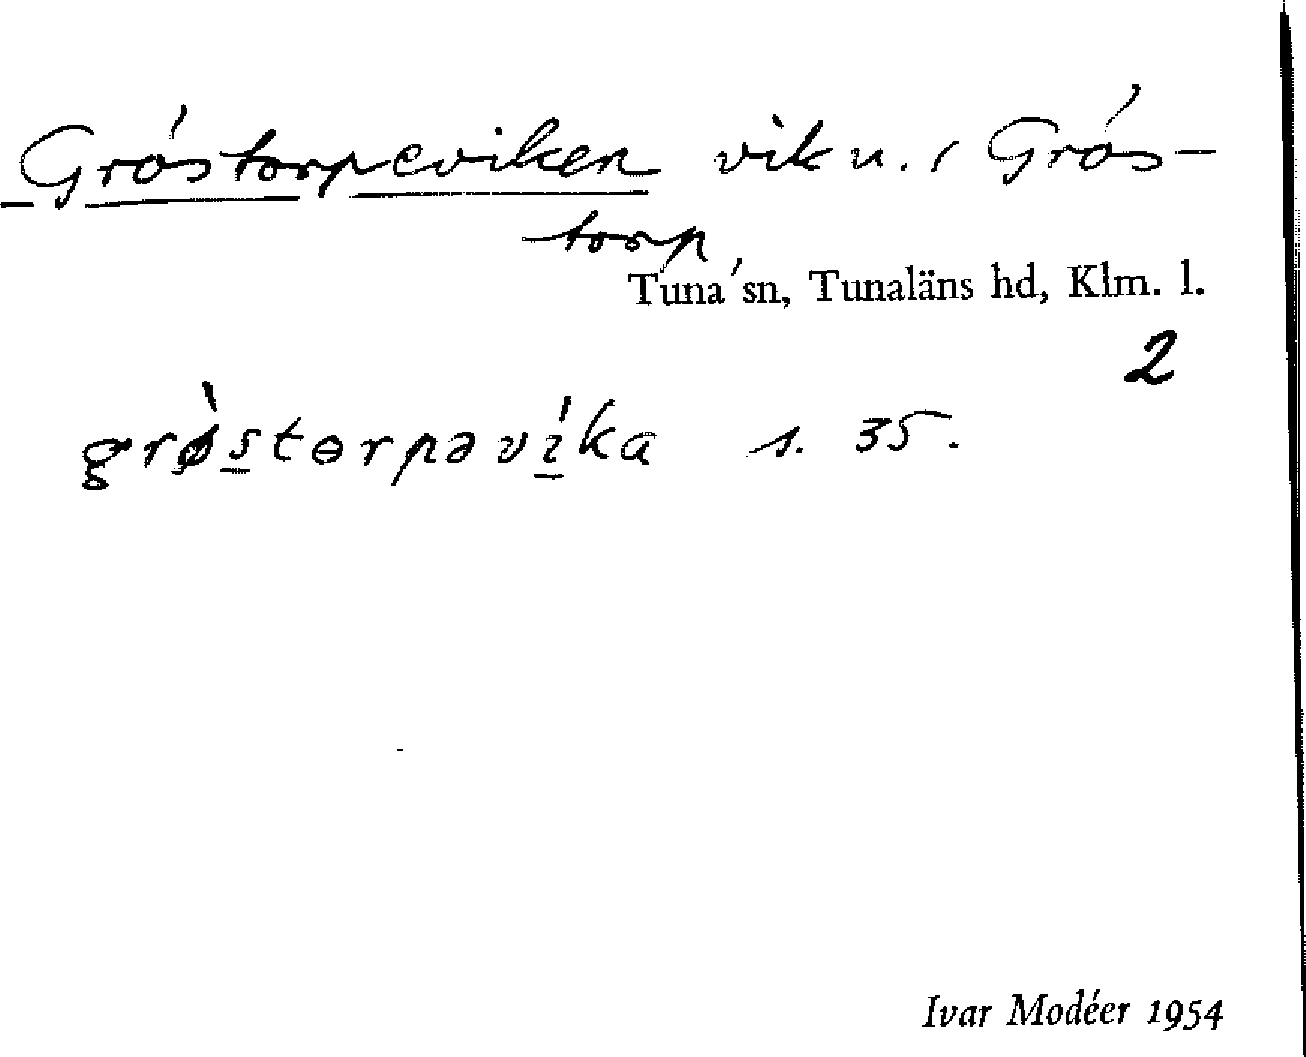 Gróstorpeviken vik u. / Grós-
torp
Tuna sn, Tunaläns hd, Klm. l.
2
grø̀storpəvíka s. 35.
Ivar Modéer 1954